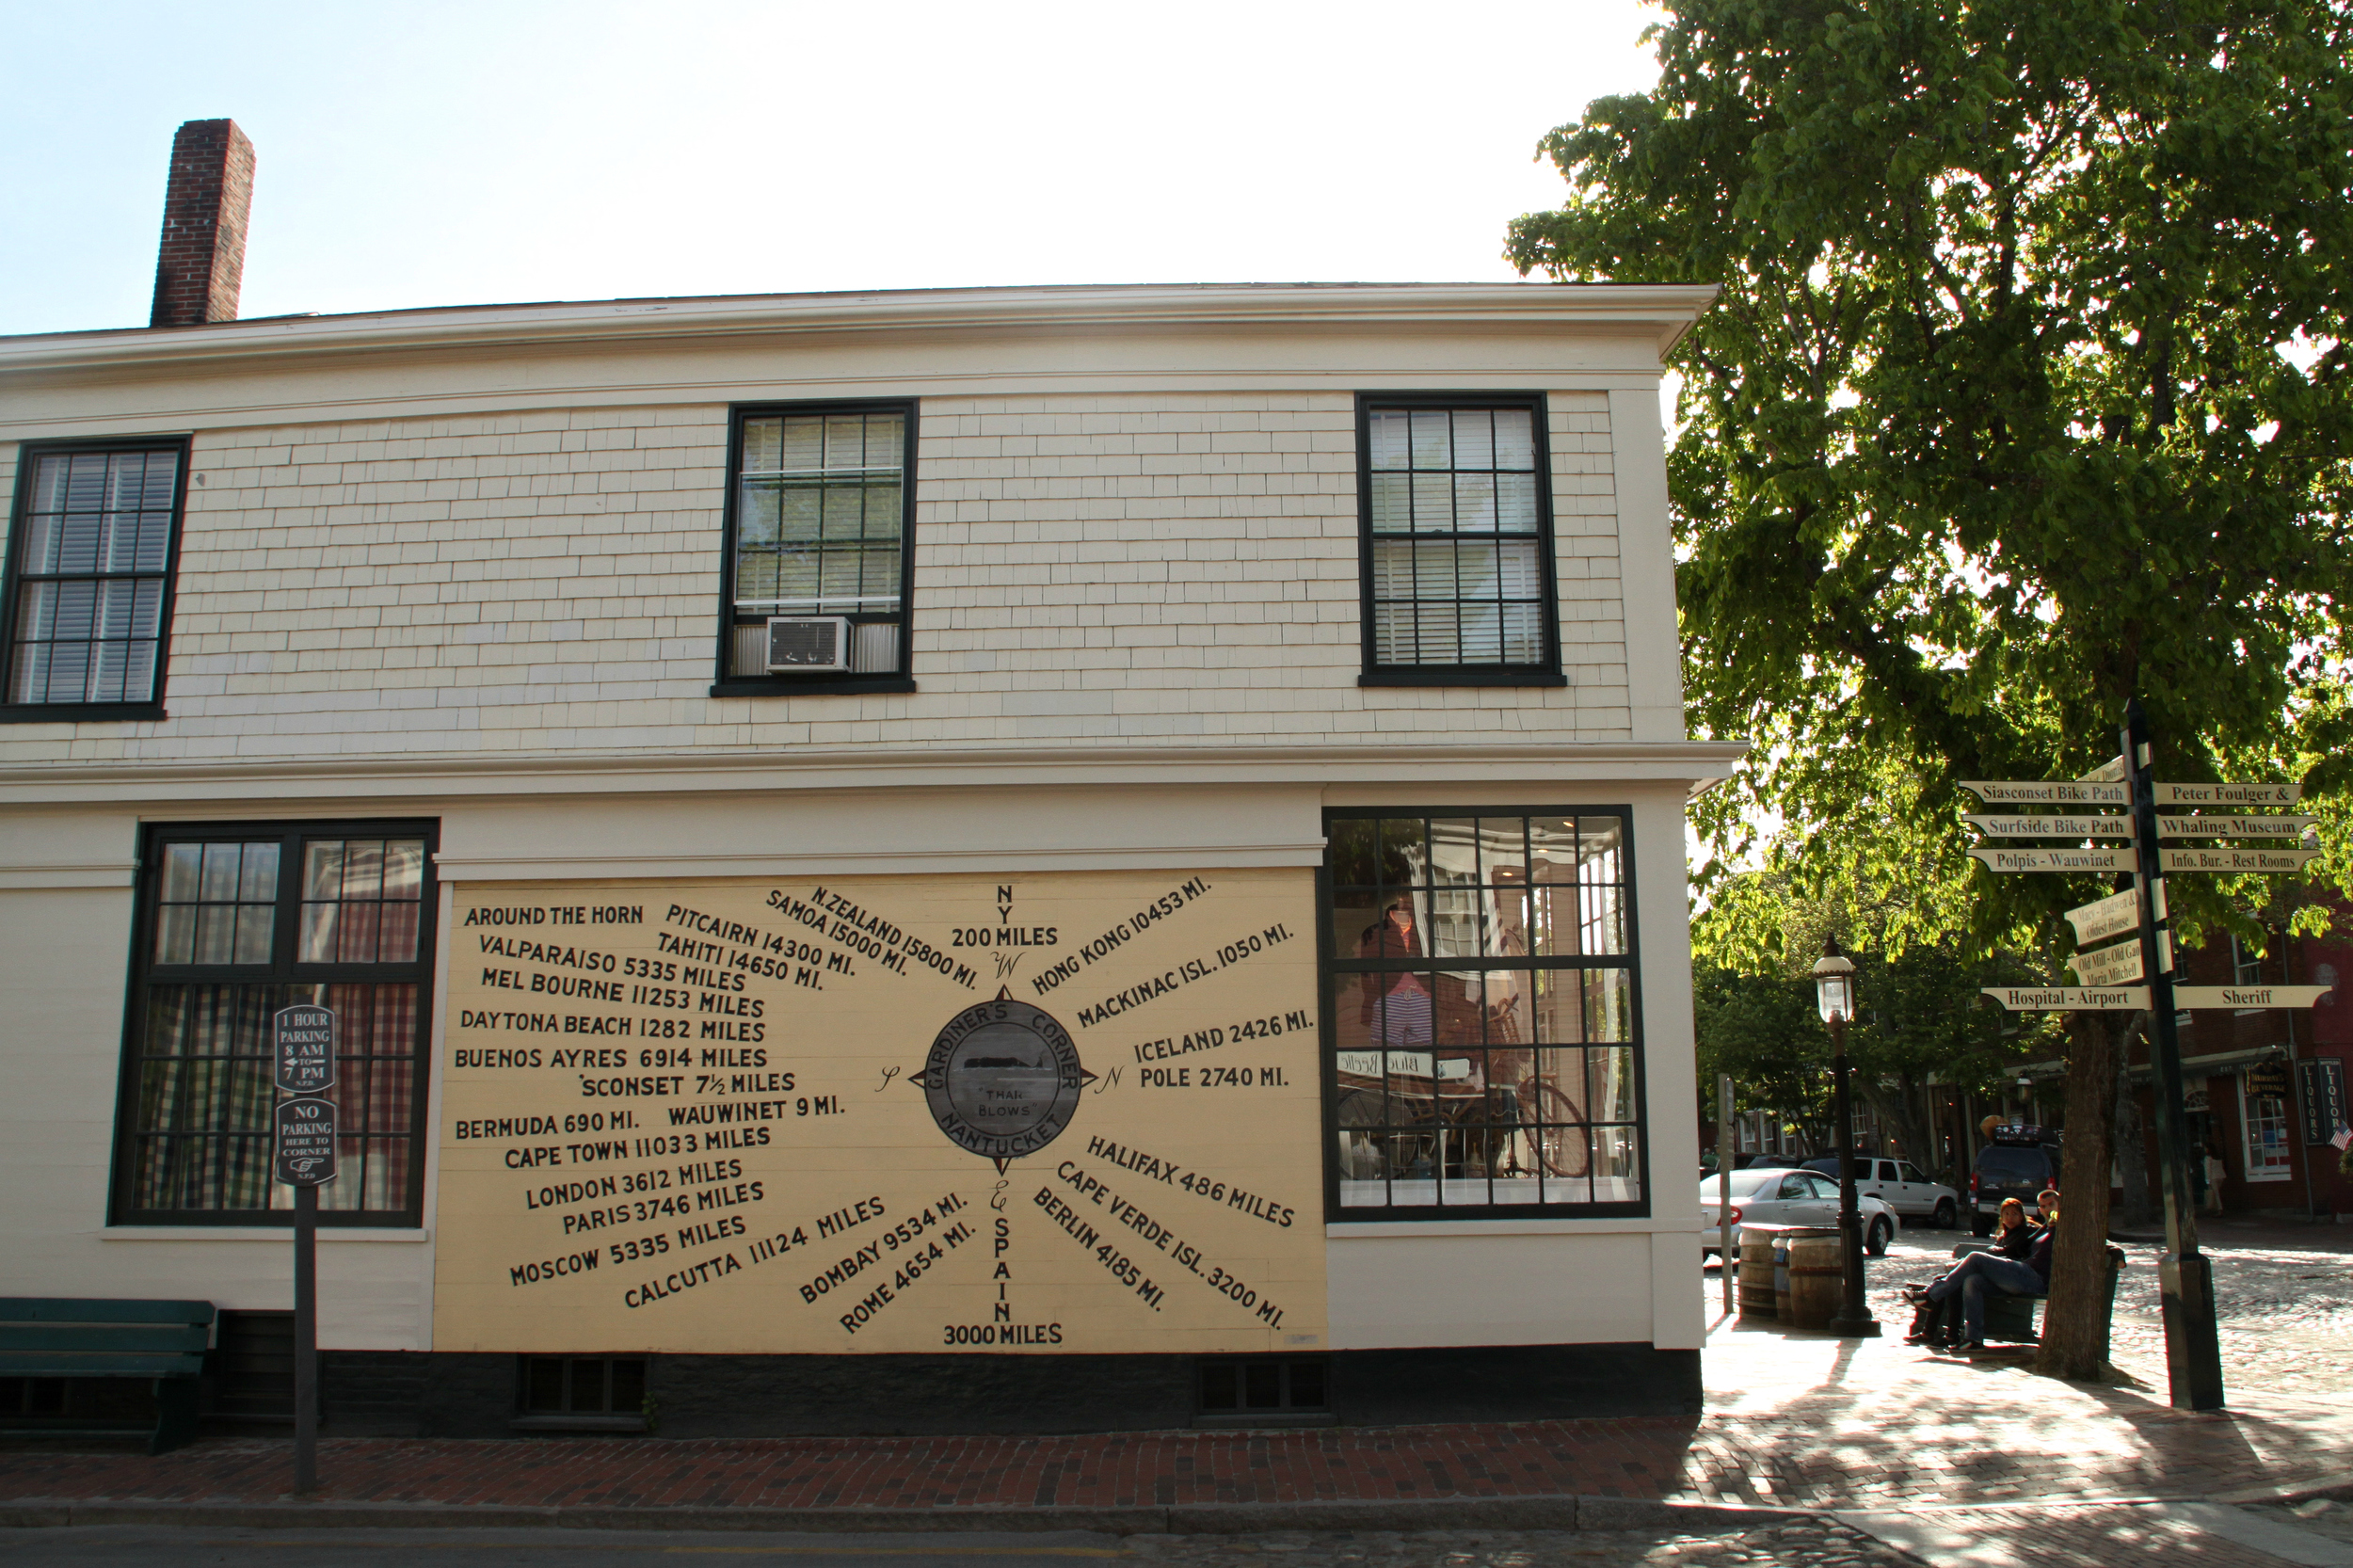 AROUND THE HORN
PITCAIRN 14300 MI.
TAHITI 14650 MI.
SAMOA 15000 MI.
N. ZEALAND 15800 MI.
VALPARAISO 5335 MILES
MEL BOURNE 11253 MILES
DAYTONA BEACH 1282 MILES
BUENOS AYRES 6914 MILES
'SCONSET 7½ MILES
BERMUDA 690 MI.
WAUWINET 9 MI.
CAPE TOWN 11033 MILES
LONDON 3612 MILES
PARIS 3746 MILES
MOSCOW 5335 MILES
CALCUTTA 11124 MILES
BOMBAY 9534 MI.
ROME 4654 MI.
NY
200 MILES
W
S
N
E
GARDINER'S CORNER
THAR
BLOWS
NANTUCKET
SPAIN
3000 MILES
HONG KONG 10453 MI.
MACKINAC ISL. 1050 MI.
ICELAND 2426 MI.
POLE 2740 MI.
HALIFAX 486 MILES
CAPE VERDE ISL. 3200 MI.
BERLIN 4185 MI.
1 HOUR
PARKING
8 AM
TO
7 PM
N.P.D.
NO
PARKING
HERE TO
CORNER
N.P.D.
Blue Beetle
Siasconset Bike Path
Surfside Bike Path
Polpis - Wauwinet
Macy - Hadwen &
Oldest House
Old Mill - Old Gaol
Maria Mitchell
Hospital - Airport
Peter Foulger &
Whaling Museum
Info. Bur. - Rest Rooms
Sheriff
LIQUORS
LIQUOR